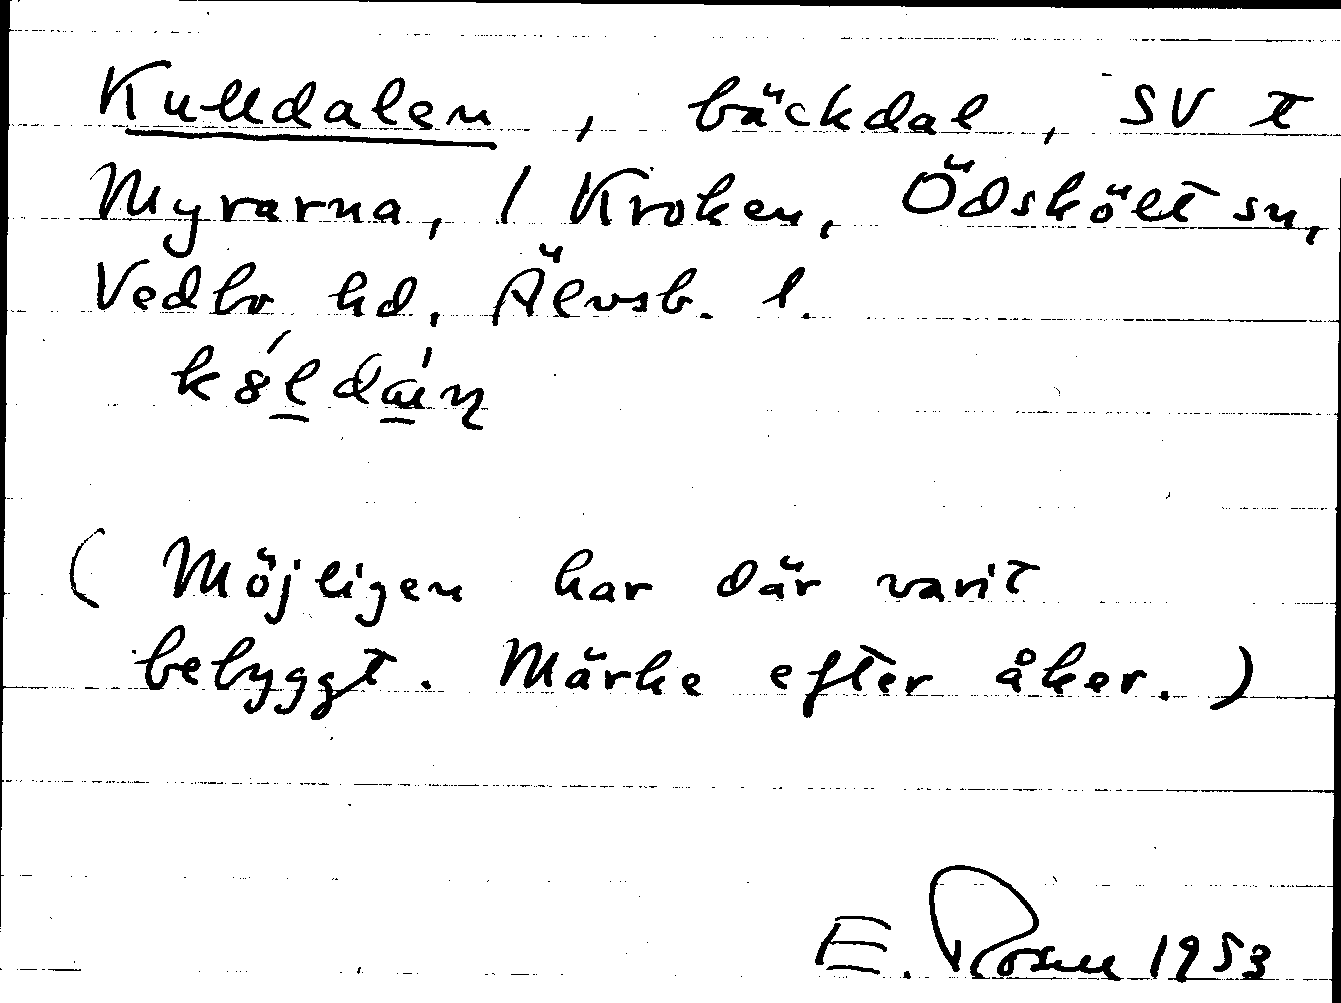 Kulldalen, bäckdal, SV t
Myrarna, / Kroken, Ödskölt sn,
Vedbo hd, Älvsb. l.
(Möjligen har där varit
bebyggt. Märke efter åker.)
E. Rosell 1953